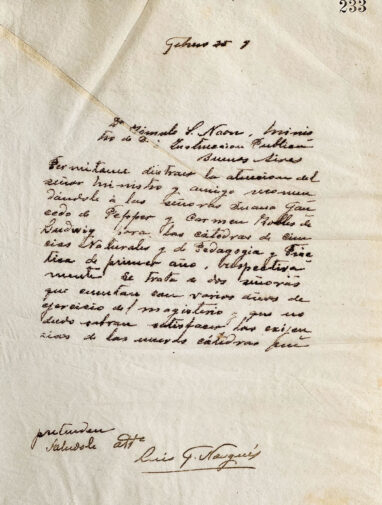 233
Febrero 25 9
Dr Rómulo S. Naon, Minis
tro de J. é Instruccion Publica
Buenos Aires
Permítame distraer la atencion del
señor Ministro y amigo recomen
dándole á las señoras Juana
de Pepper y Carmen Robles de
Ludwig para las cátedras de Cien
cias Naturales y de Pedagogía y Prác
tica de primer año, respectiva
mente. Se trata de dos señoras
que cuentan con varios años de
ejercicio del magisterio y que no
dudo sabran satisfacer las exijen
cias de las nuevas cátedras que
pretenden
Salúdole atte
Luis F. Nougués